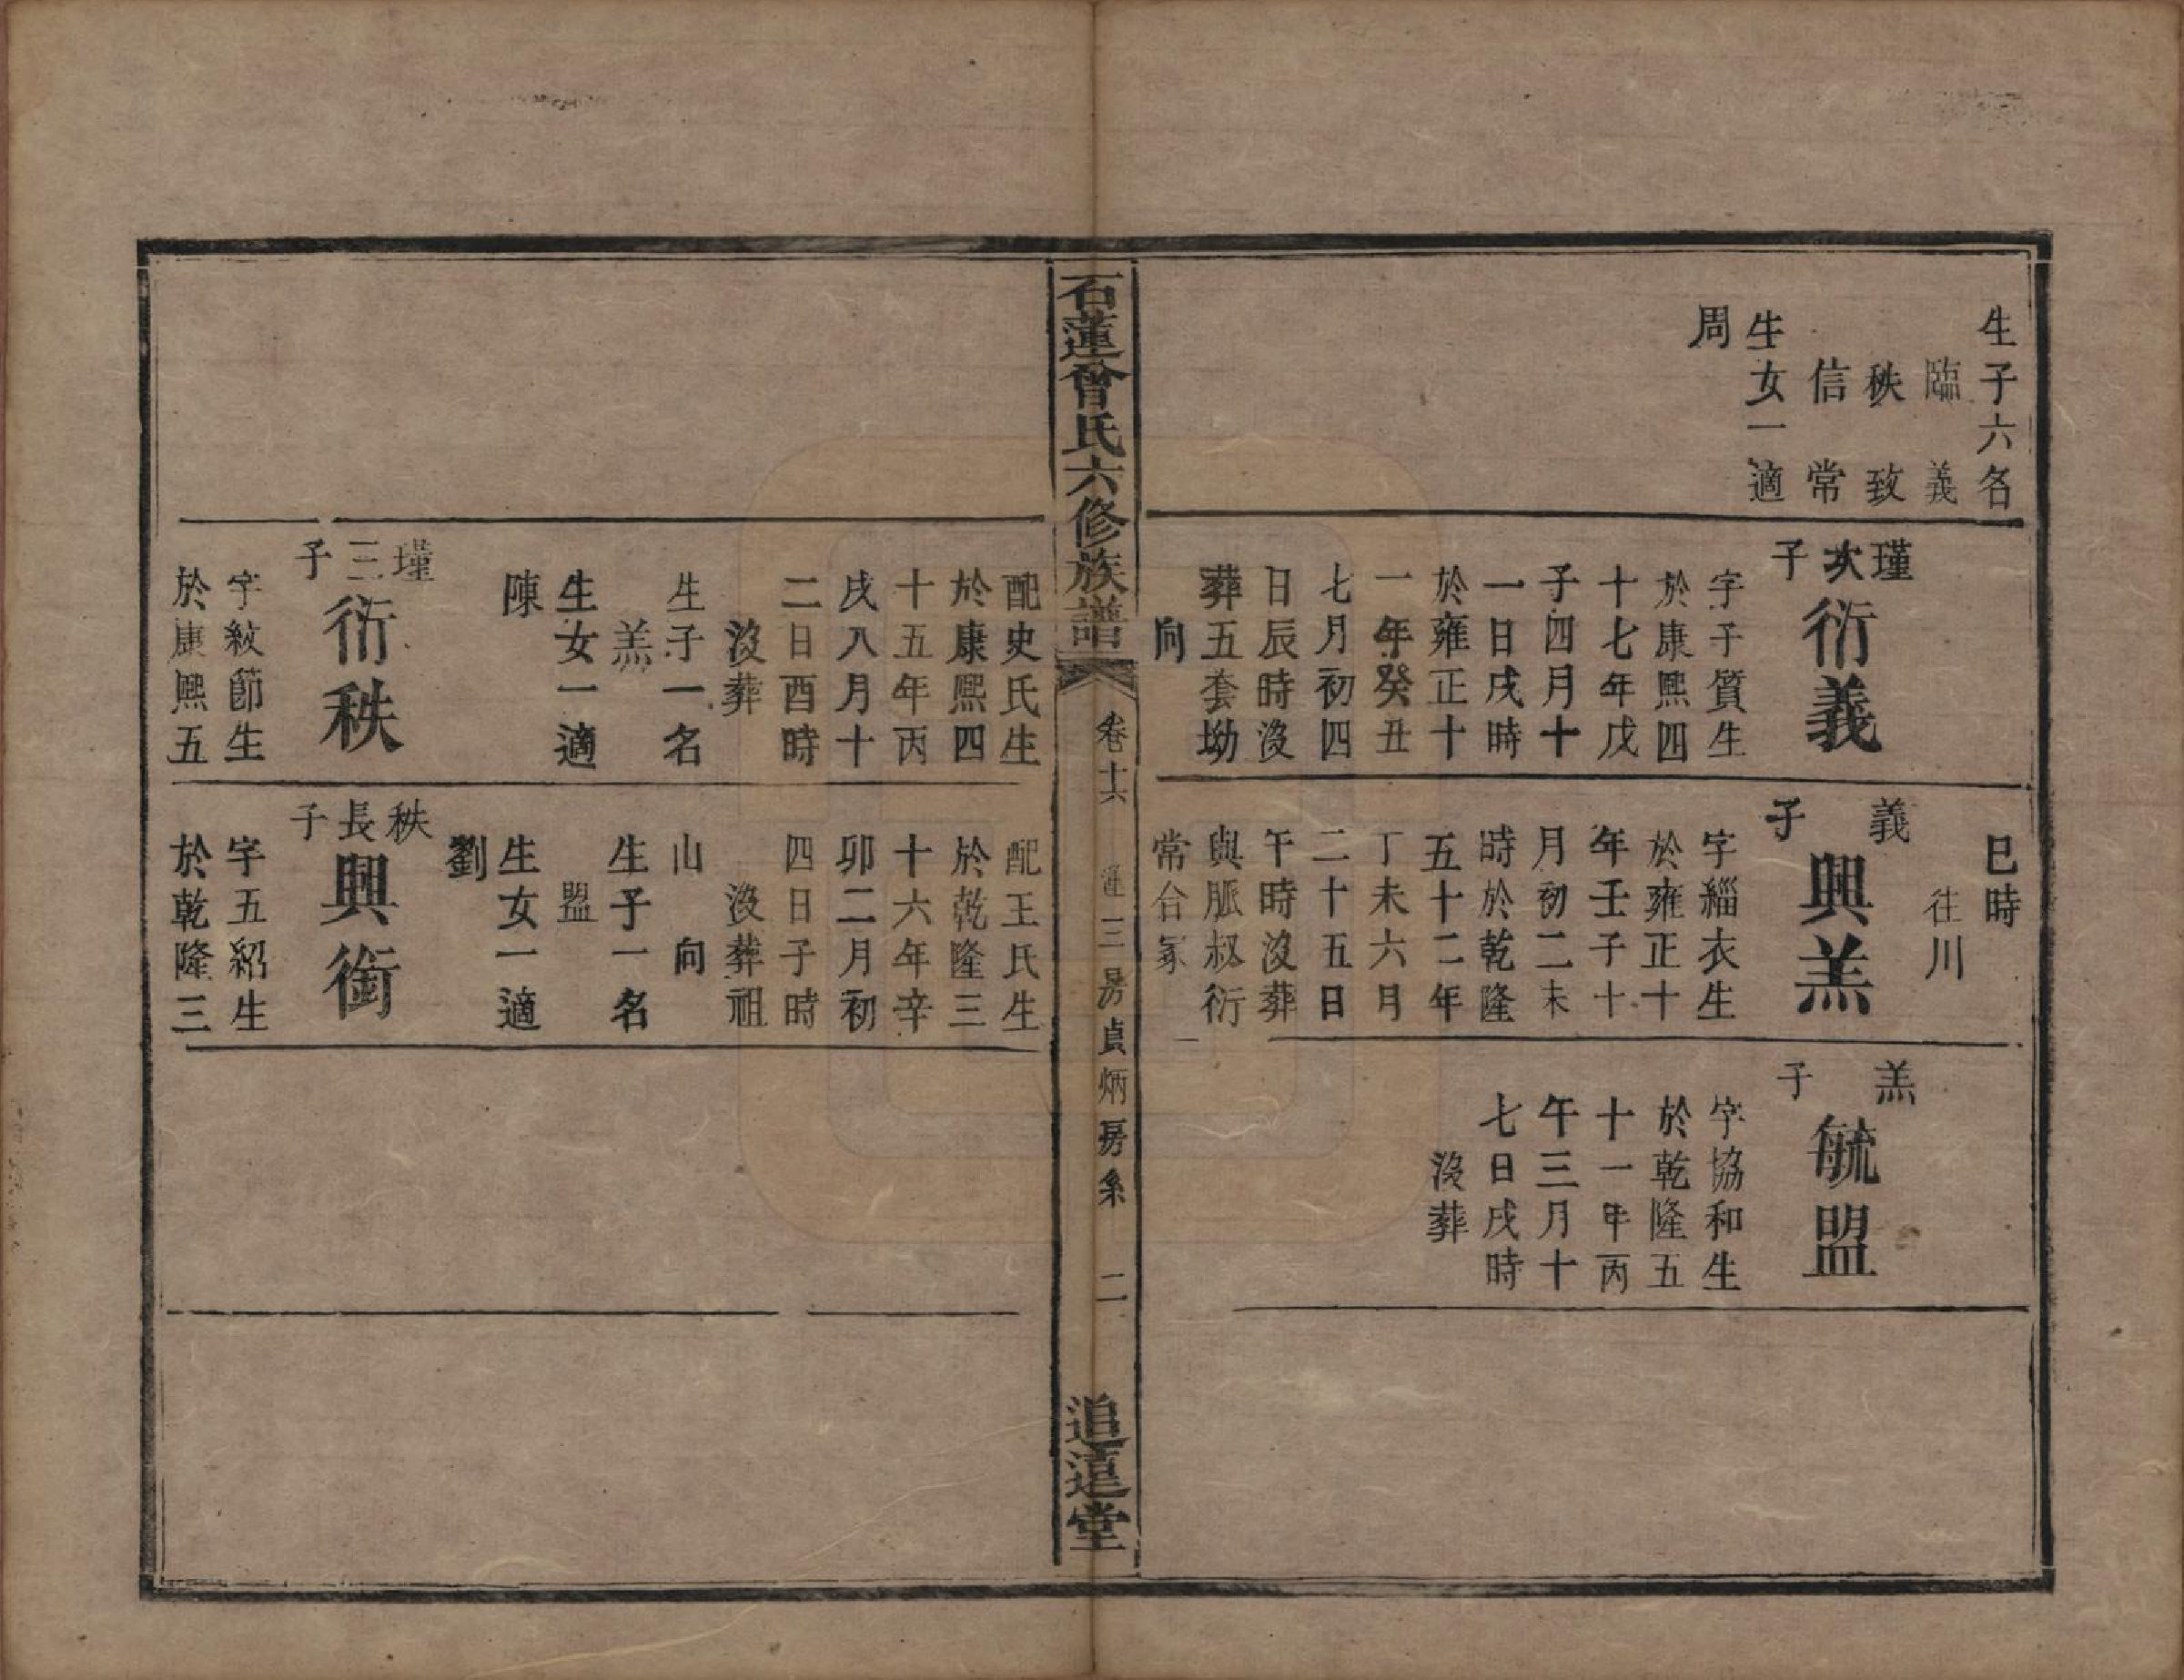 生子六名
臨 義
秩 致
信 常
生女一適
周
瑾次子
衍義
字子質生
於康熙四
十七年戊
子四月十
一日戌時
於雍正十
一年癸丑
七月初四
日辰時沒
葬五套坳
向
巳時
往川
義子
興羔
字緇衣生
於雍正十
年壬子十
月初二未
時於乾隆
五十二年
丁未六月
二十五日
午時沒葬
與脈叔衍
常合冢
羔子
毓盟
字協和生
於乾隆五
十一年丙
午三月十
七日戌時
沒葬
石蓮曾氏六修族譜
卷十六
進三房貞炳房系
二
追遠堂
配史氏生
於康熙四
十五年丙
戌八月十
二日酉時
沒葬
生子一名
羔
生女一適
陳
瑾三子
衍秩
字紋節生
於康熙五
配王氏生
於乾隆三
十六年辛
卯二月初
四日子時
沒葬祖
山 向
生子一名
盟
生女一適
劉
秩長子
興銜
字五紹生
於乾隆三